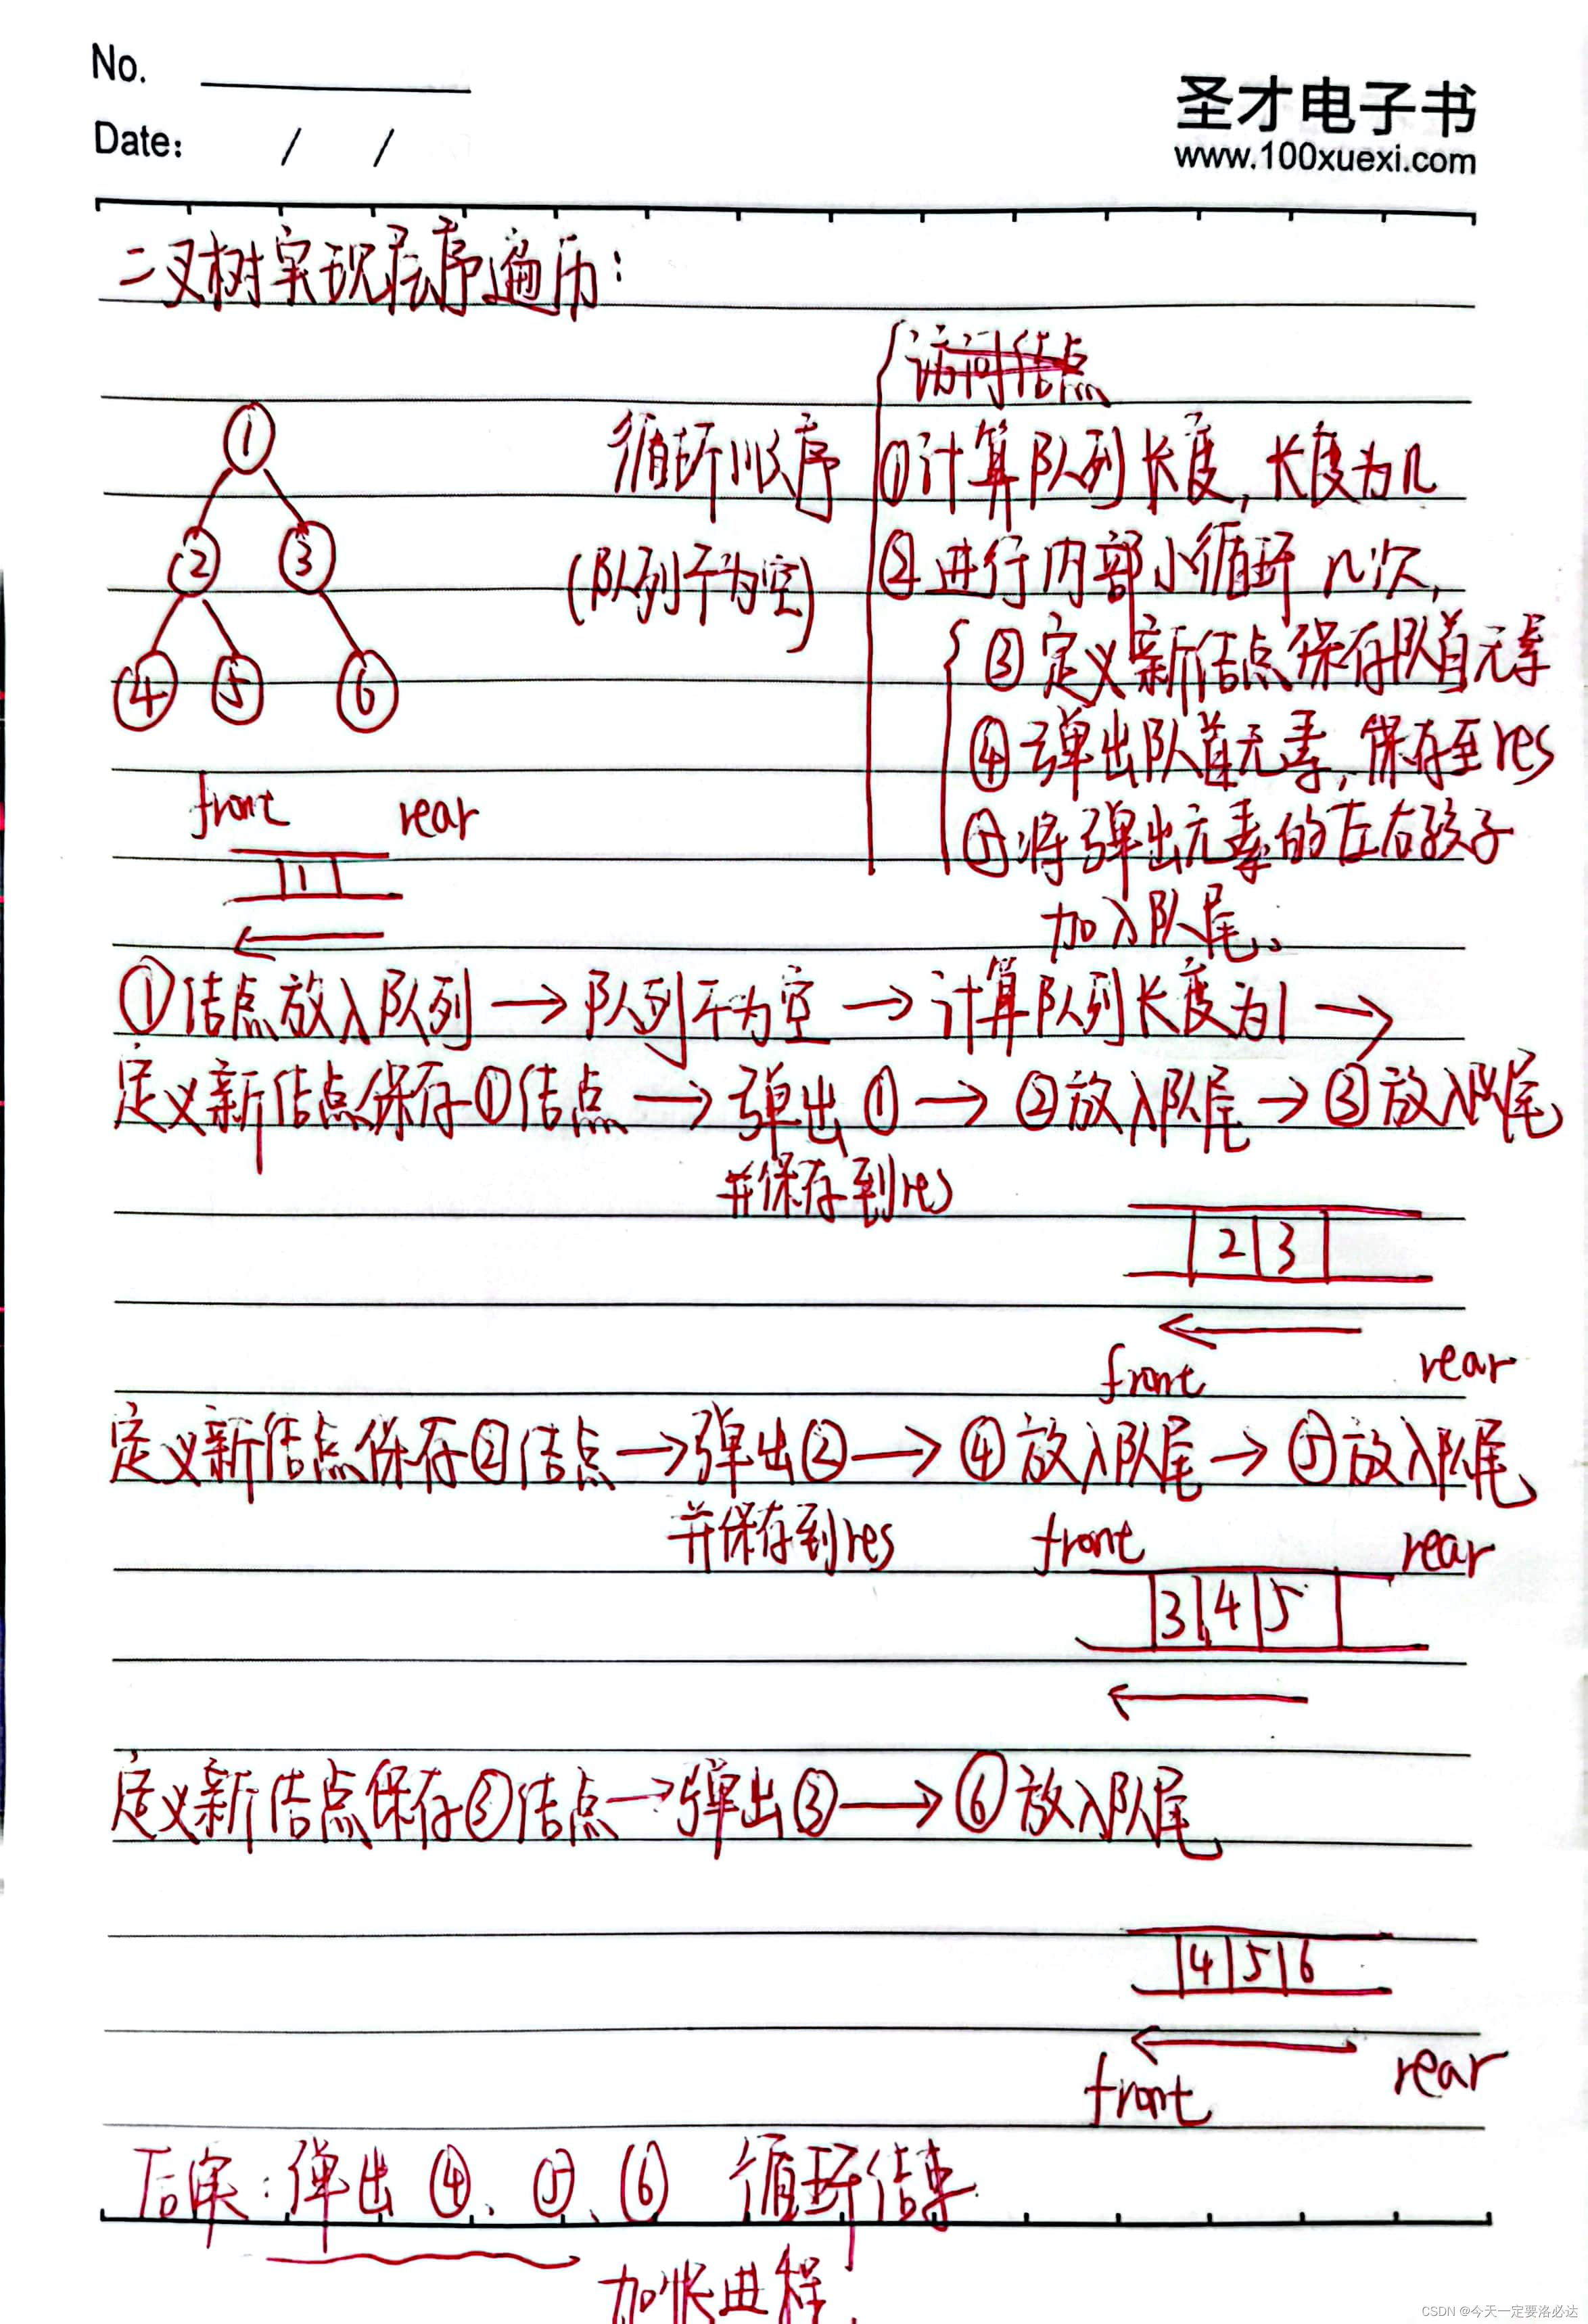 No.
Date: / /
圣才电子书
www.100xuexi.com
二叉树实现层序遍历:
访问结点
1
2 3
4 5 6
循环顺序
(队列不为空)
①计算队列长度,长度为n
②进行内部小循环n次,
③定义新结点保存队首元素
④弹出队首元素,保存至res
⑤将弹出元素的左右孩子
加入队尾。
front rear
1
①结点放入队列→队列不为空→计算队列长度为1→
定义新结点保存①结点→弹出①→②放入队尾→③放入队尾
并保存到res
2 3
front rear
定义新结点保存②结点→弹出②→④放入队尾→⑤放入队尾
并保存到res
front rear
3 4 5
定义新结点保存③结点→弹出③→⑥放入队尾
4 5 6
front rear
后续:弹出④、⑤、⑥ 循环结束.
加快进程.
CSDN @今天一定要洛必达